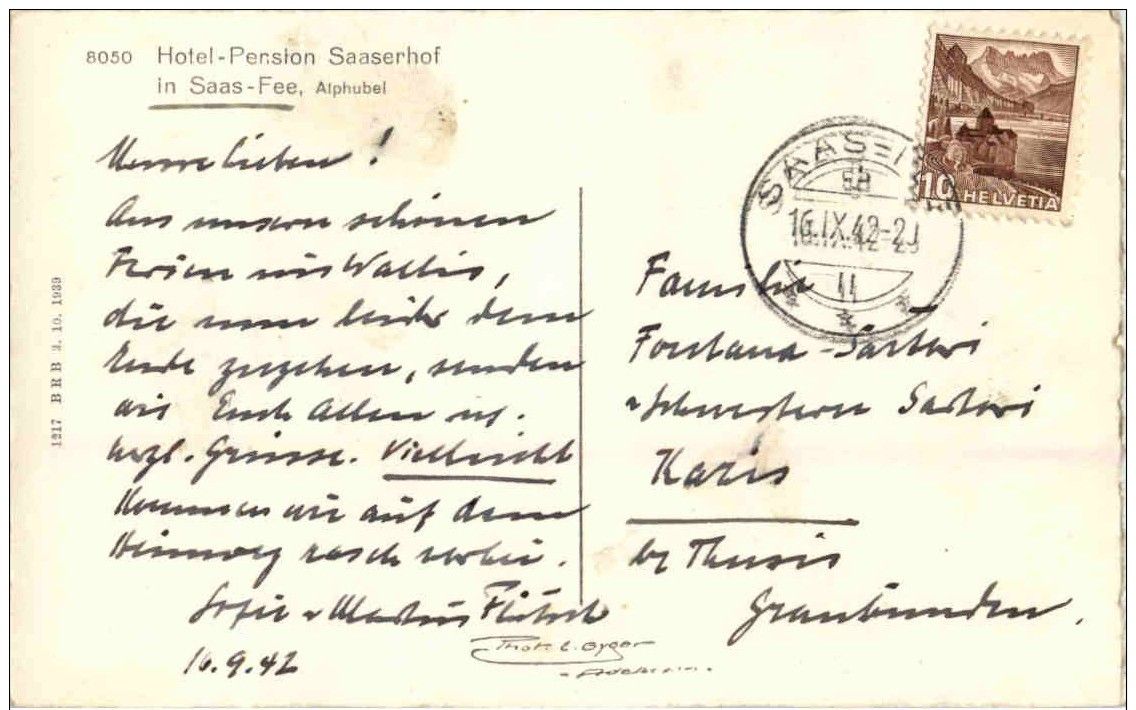 8050 Hotel-Pension Saaserhof
in Saas-Fee, Alphubel
Unsre Lieben!
Aus unsern schönen
Ferien im Wallis,
die nun leider dem
Ende zugehen, senden
wir Euch Allen
herzl. Grüsse. Vielleicht
kommen wir auf dem
Heimweg rasch vorbei.
Sofie u Martin Flütsch
16.9.42
1217 BRB 3. 10. 1939
SAAS-
16.IX.42-20
10 HELVETIA
Familie
Fontana-Sartori
u Schwestern Sartori
Kazis
by Thusis
Graubünden.
Phot. E. Gyger
Adelboden.